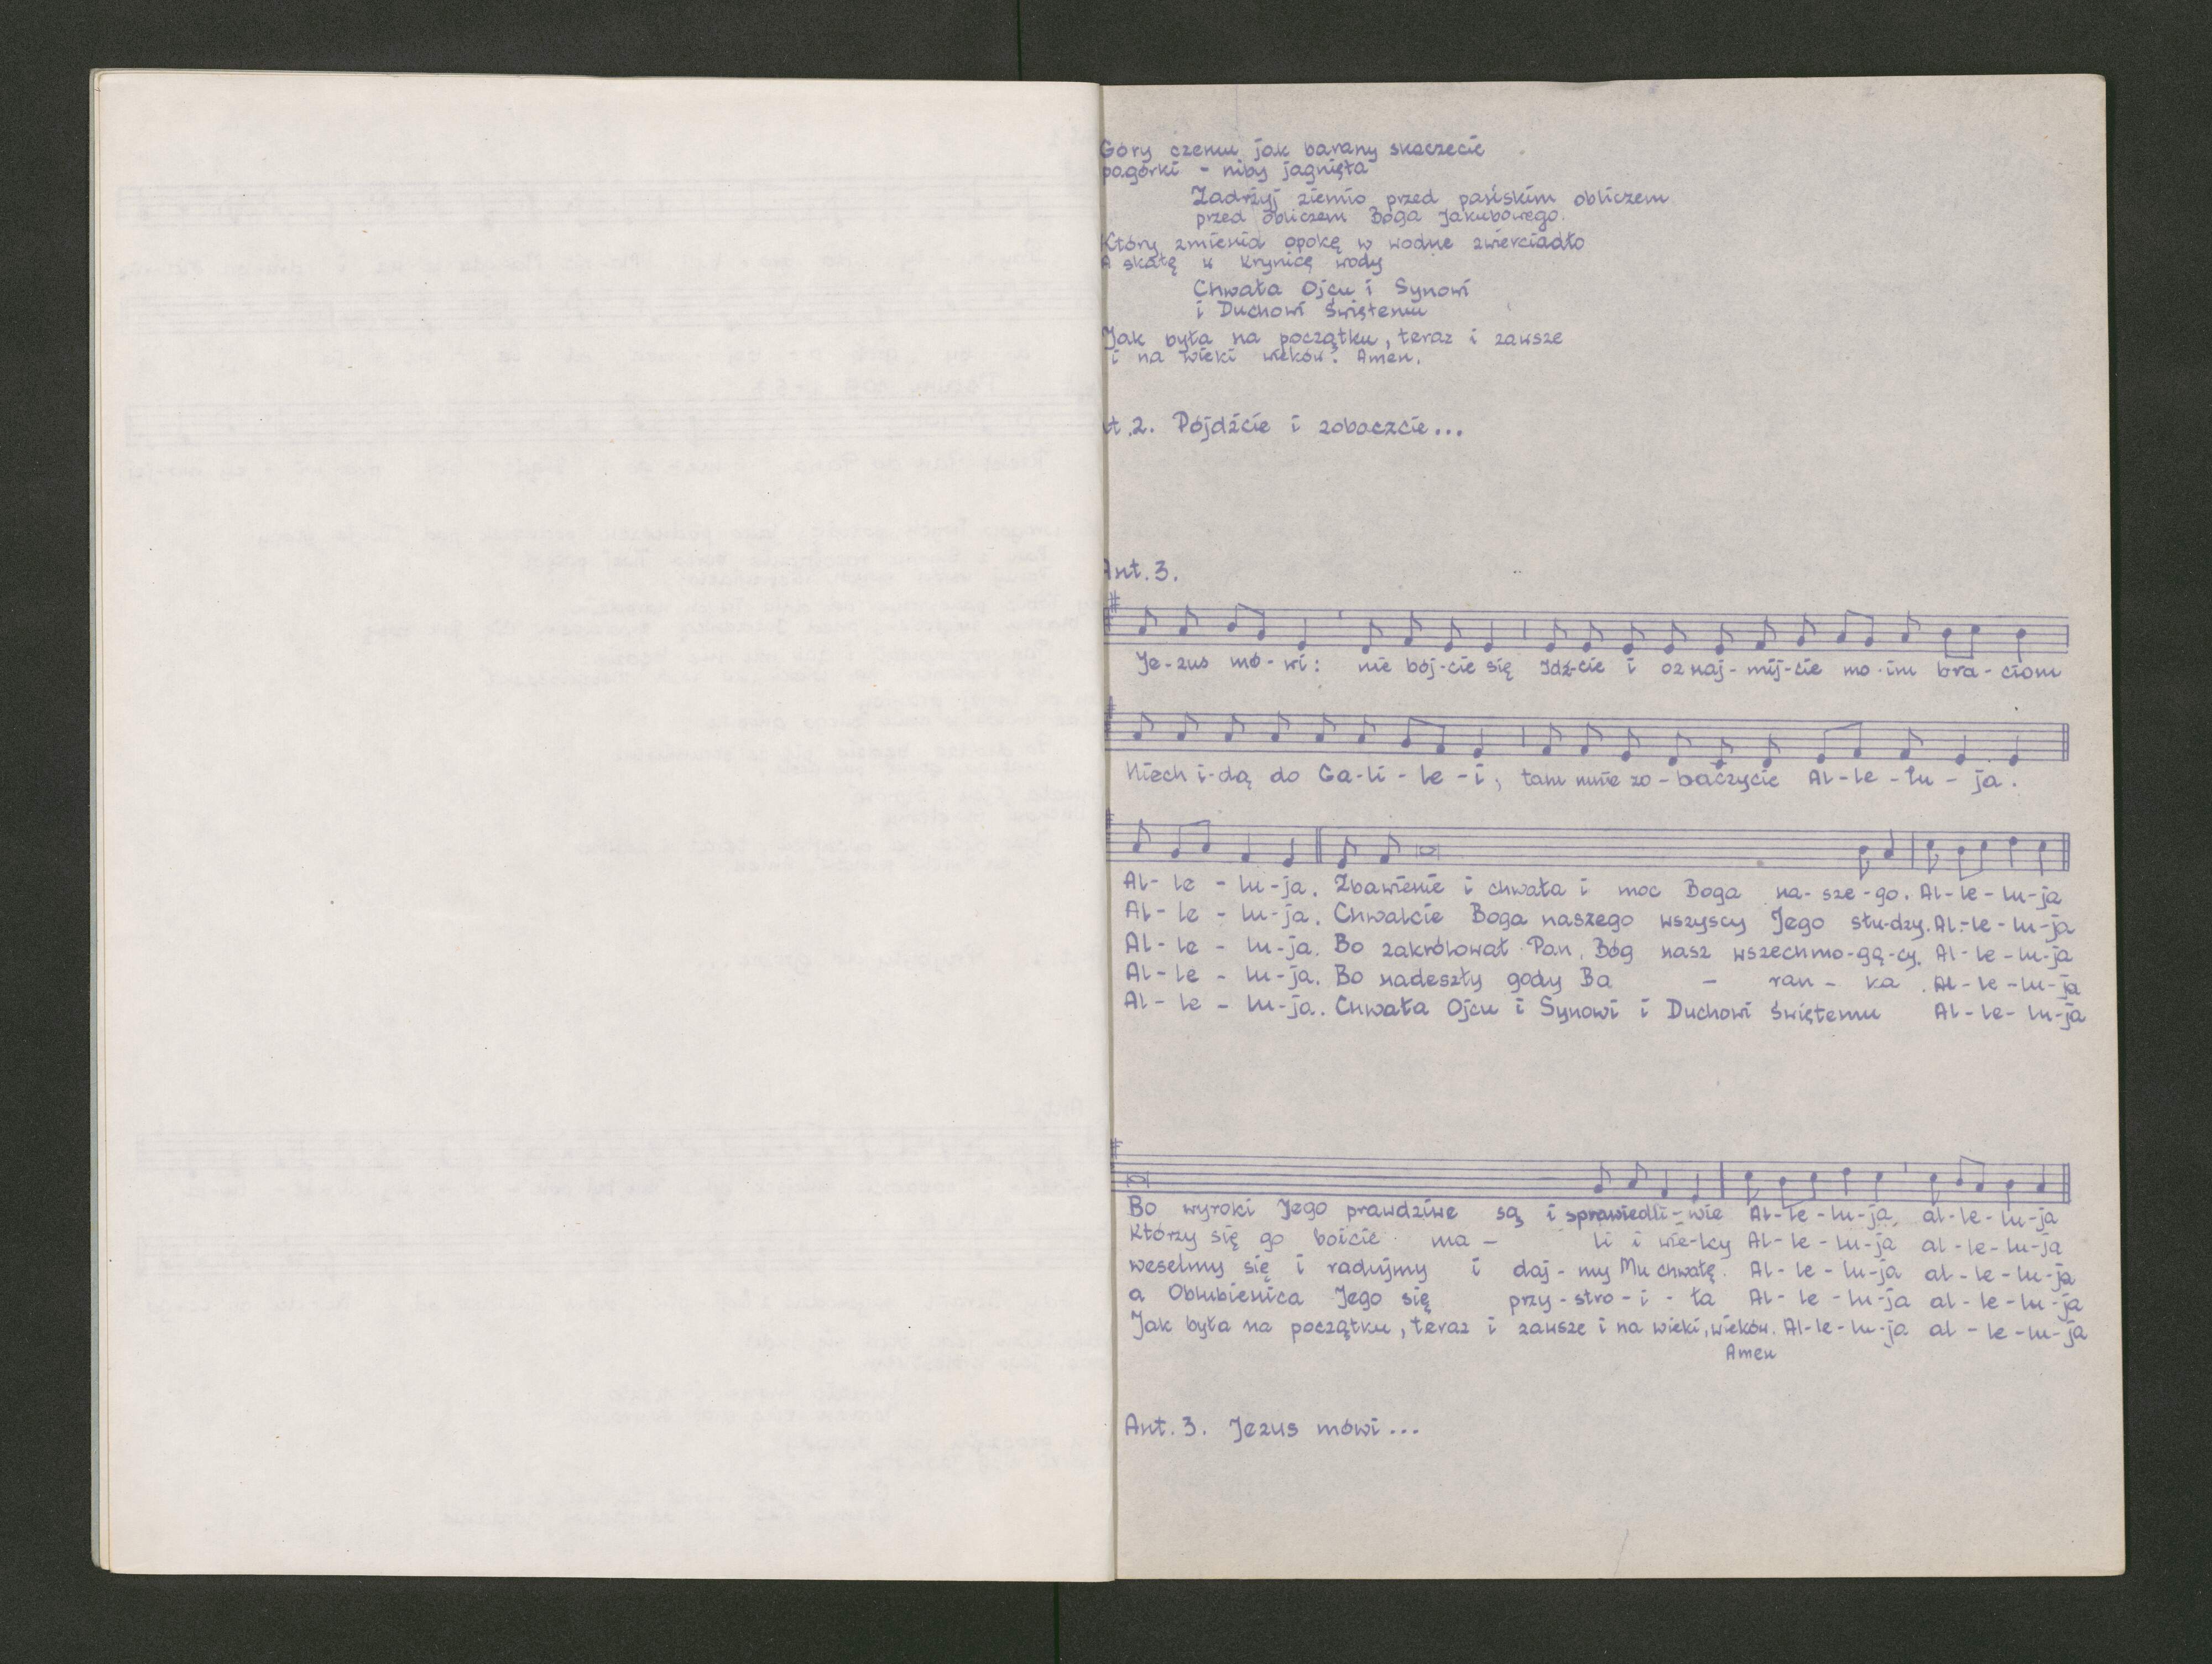 Góry czemu jak barany skaczecie
pagórki - niby jagnięta
Zadrżyj ziemio przed pańskim obliczem
przed obliczem Boga Jakubowego.
Który zmienia opokę w wodne zwierciadło
A skałę w krynicę wody
Chwała Ojcu i Synowi
i Duchowi Świętemu
Jak była na początku, teraz i zawsze
i na wieki wieków. Amen.
t. 2. Pójdźcie i zobaczcie...
Ant. 3.
Je-zus mó-wi: nie bój-cie się Idź-cie i oznaj-mij-cie mo-im bra-ciom
Niech i-dą do Ga-li-le-i, tam mnie zo-baczycie Al-le-lu-ja.
Al-le-lu-ja. Zbawienie i chwała i moc Boga na-sze-go. Al-le-lu-ja
Al-le-lu-ja. Chwalcie Boga naszego wszyscy Jego słu-dzy. Al-le-lu-ja
Al-le-lu-ja. Bo zakrólował Pan, Bóg nasz wszechmo-gą-cy. Al-le-lu-ja
Al-le-lu-ja. Bo nadeszły gody Ba - ran-ka. Al-le-lu-ja
Al-le-lu-ja. Chwała Ojcu i Synowi i Duchowi Świętemu Al-le-lu-ja
Bo wyroki Jego prawdziwe są i sprawiedli-wie Al-le-lu-ja, al-le-lu-ja
Którzy się go boicie ma - li i wie-lcy Al-le-lu-ja al-le-lu-ja
weselmy się i radujmy i daj-my Mu chwałę. Al-le-lu-ja al-le-lu-ja
a Oblubienica Jego się przy-stro-i-ła Al-le-lu-ja al-le-lu-ja
Jak była na początku, teraz i zawsze i na wieki, wieków. Al-le-lu-ja al-le-lu-ja
Amen
Ant. 3. Jezus mówi...